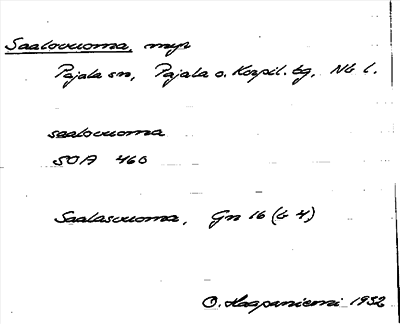 Saalovuoma, myr
Pajala sn, Pajala o. Korpil. tg, Nb l.
saalovuoma
SOA 460
Saalasvuoma, Gn 16 (b 4)
O. Haapaniemi 1932